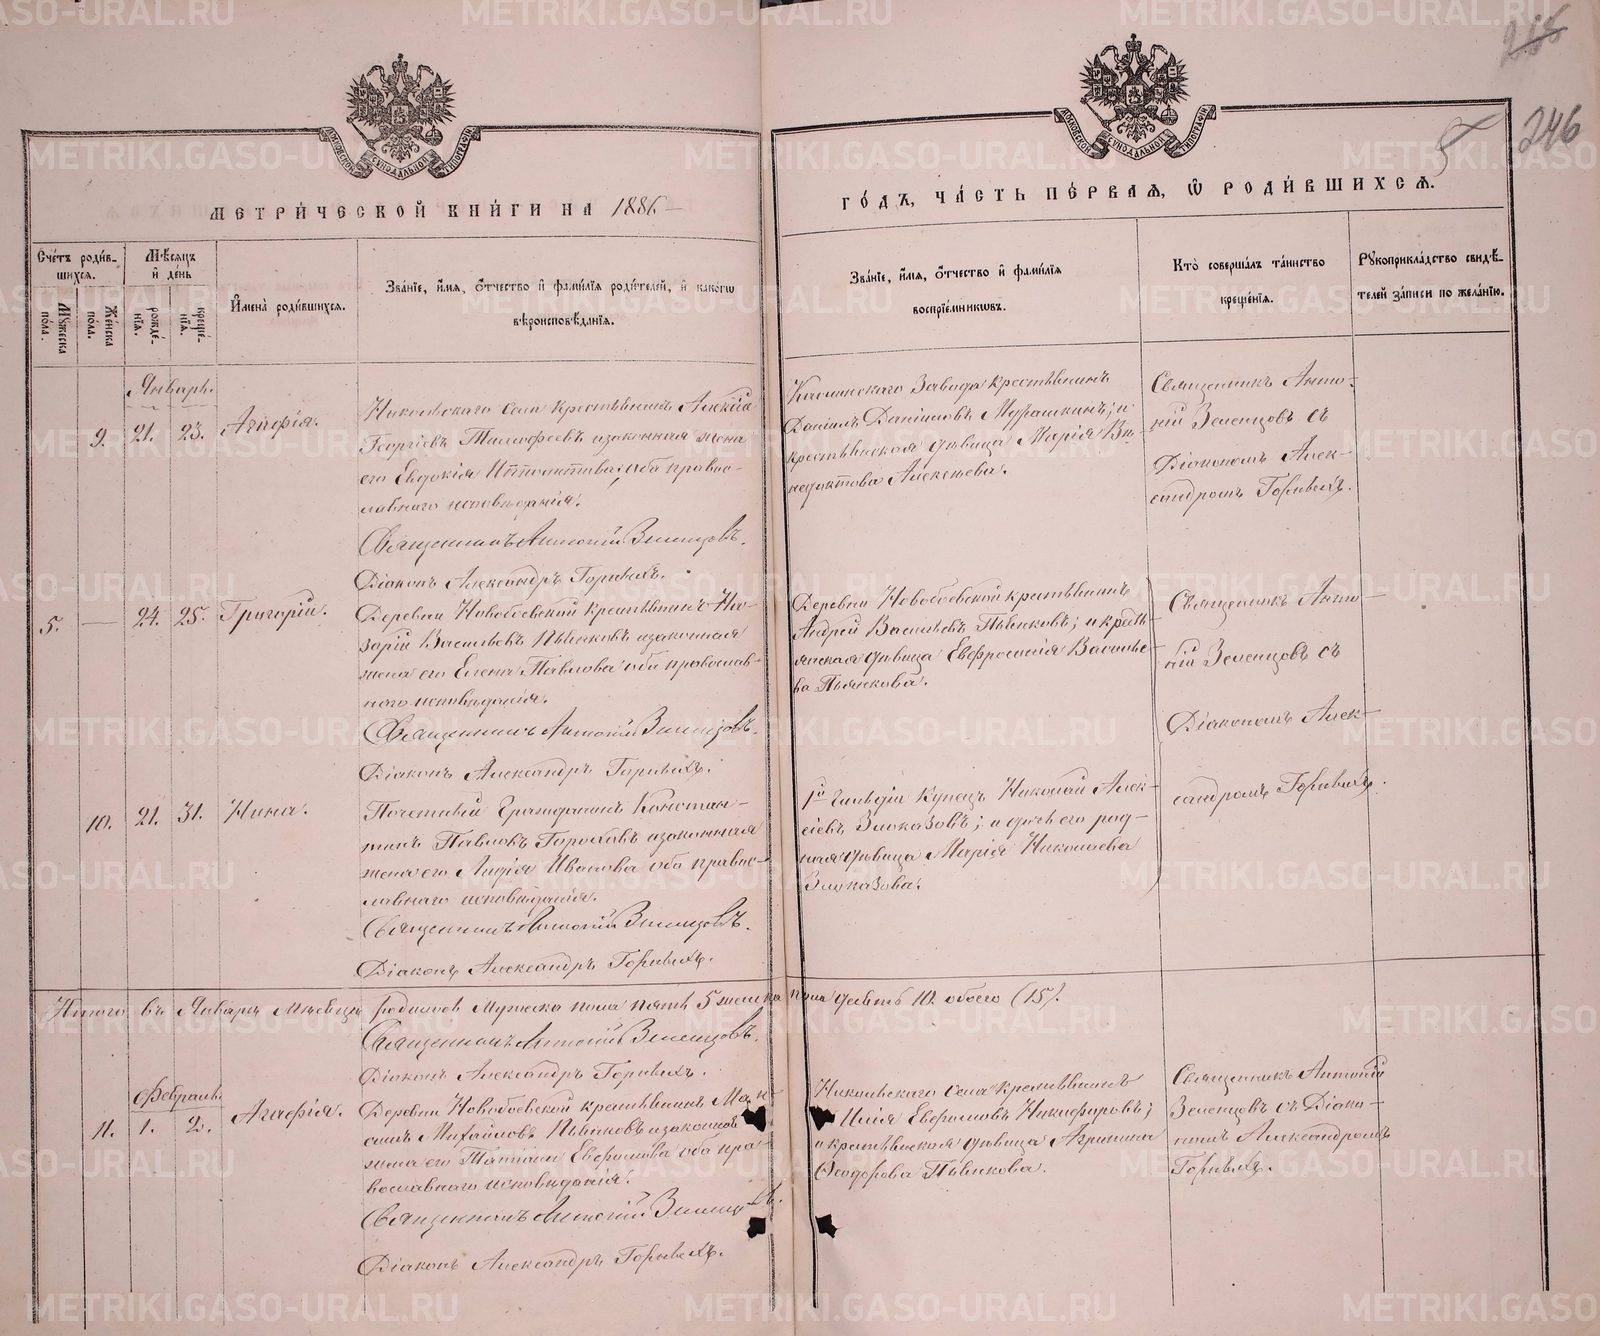 METRIKI.GASO-URAL.RU
246
МЕТРИЧЕСКОЙ КНИГИ НА 1886
ГОДЪ, ЧАСТЬ ПЕРВАЯ, Ѡ РОДИВШИХСЯ.
Счетъ родившихся.
Мужеска пола.
Женска пола.
Мѣсяцъ и день
рождѣнїя.
крещенїя.
Имена родившихся.
Званїе, имя, отчество и фамилїя родителей, и какогѡ вѣроисповѣданїя.
Званїе, имя, отчество и фамилїя воспрїемникѡвъ.
Кто совершалъ таинство крещенїя.
Рукоприкладство свидѣтелей записи по желанїю.
Январь.
9. 21. 23.
Никольскаго села крестьянинъ Алексій
Георгіевъ Тимофеевъ и законная жена
его Евдокія оба правос-
лавнаго исповѣданія.
Священникъ Антоній Зеленцовъ.
Діаконъ Александръ Горныхъ.
Каслинскаго Завода крестьянинъ
Даніилъ Даніиловъ Мурашкинъ; и
крестьянская дѣвица Марія Ве-
недиктова Алексѣева.
Священникъ Анто-
ній Зеленцовъ съ
Діакономъ Алек-
сандромъ Горныхъ.
5. — 24. 25. Григорій.
Деревни Новобоевской крестьянинъ На-
зарій Васильевъ Пьянковъ и законная
жена его Елена Павлова оба православ-
наго исповѣданія.
Священникъ Антоній Зеленцовъ.
Діаконъ Александръ Горныхъ.
Деревни Новобоевской крестьянинъ
Андрей Васильевъ Пьянковъ; и кресть-
янская дѣвица Евфросинія Василье-
ва Пьянкова.
Священникъ Анто-
ній Зеленцовъ съ
Діакономъ Алек-
сандромъ Горныхъ.
10. 21. 31. Нина.
Почетный Гражданинъ Констан-
тинъ Павловъ Гороховъ и законная
жена его Лидія Иванова оба правос-
лавнаго исповѣданія.
Священникъ Антоній Зеленцовъ.
Діаконъ Александръ Горныхъ.
1й Гильдіи Купецъ Николай Алек-
сѣевъ Злоказовъ; и дочь его род-
ная дѣвица Марія Николаева
Злоказова.
Итого въ Январѣ мѣсяцѣ родилось Мужеска пола пять 5 женска пола десять 10. обоего (15).
Священникъ Антоній Зеленцовъ.
Діаконъ Александръ Горныхъ.
Февраль.
11. 1. 2. Агафія.
Деревни Новобоевской крестьянинъ Мак-
симъ Михайловъ Пьянковъ и законная
жена его Татіана Евфимова оба пра-
вославнаго исповѣданія.
Священникъ Антоній Зеленцовъ.
Діаконъ Александръ Горныхъ.
Никольскаго Села крестьянинъ
Илія Евфимовъ Никифоровъ;
и крестьянская дѣвица Агрипина
Ѳеодорова Пьянкова.
Священникъ Антоній
Зеленцовъ съ Діако-
номъ Александромъ
Горныхъ.